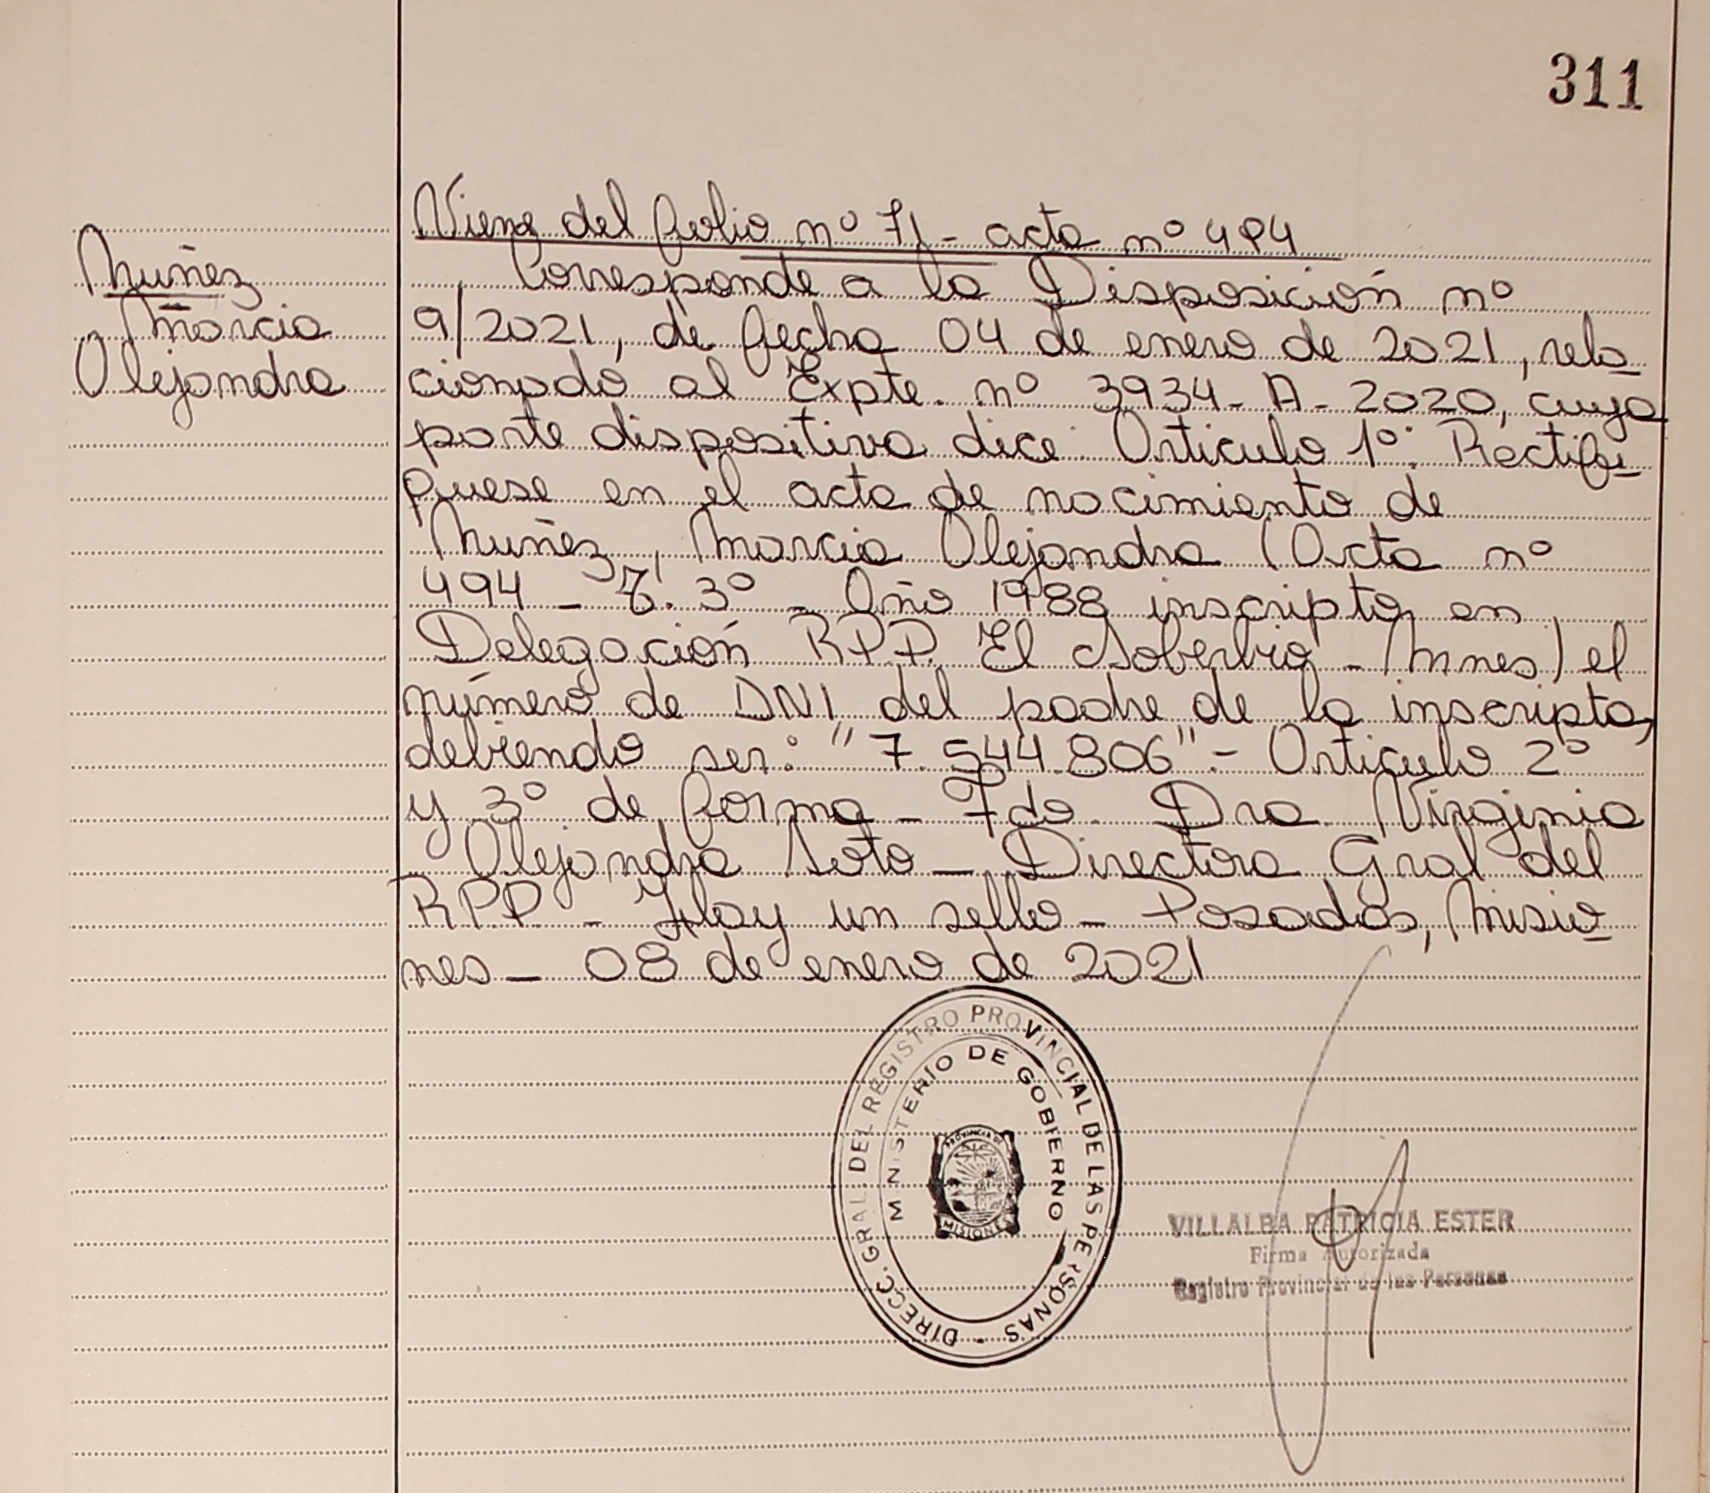 311
Viene del folio nº 71 - acta nº 494
Nuñez
Marcia
Alejandra
Corresponde a la Disposición nº
9/2021, de fecha 04 de enero de 2021, rela
cionado al Expte. nº 3934 - A - 2020, cuya
parte dispositiva dice: Articulo 1º: Rectifi
quese en el acta de nacimiento de
Nuñez, Marcia Alejandra (Acta nº
494 - T. 3º - Año 1988 inscripta en
Delegación RPP. El Soberbio - Mnes) el
número de DNI del padre de la inscripta,
debiendo ser: "7.544.806" - Articulo 2º
y 3º de forma - Fdo. Dra Virginia
Alejandra Soto - Directora Gral del
RPP - Hay un sello - Posadas, Misio
nes - 08 de enero de 2021
DIRECC. GRAL. DEL REGISTRO PROVINCIAL DE LAS PERSONAS -
MINISTERIO DE GOBIERNO
PROVINCIA DE
MISIONES
VILLALBA PATRICIA ESTER
Firma Autorizada
Registro Provincial de las Personas